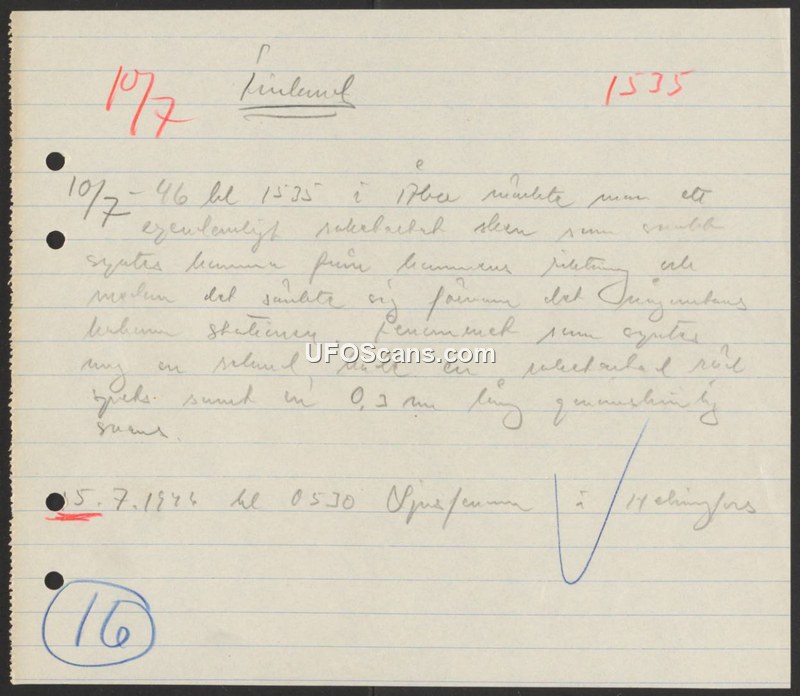 10/7 Finland 1535
10/7 - 46 kl 1535 i Åbo märkte man ett
egendomligt raketartat sken som snabbt
syntes komma från hamnens riktning och
medan det sänkte sig försvann det någonstans
bakom stationen. Fenomenet som syntes
en sekund hade en raketartad röd
spets samt en 0,3 m lång genomskinlig
svans.
15.7.1946 kl 0530 Ljusfenomen i Helsingfors
16
UFOScans.com